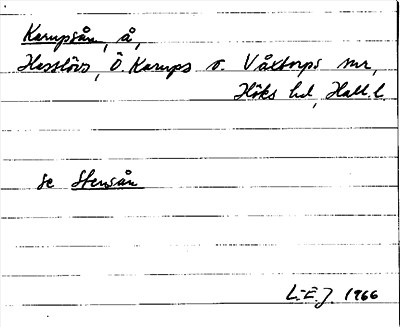 Karupsån, å,
Hasslövs, Ö. Karups o. Våxtorps snr,
Höks hd, Hall. l.
se Stensån
L-E. J. 1966